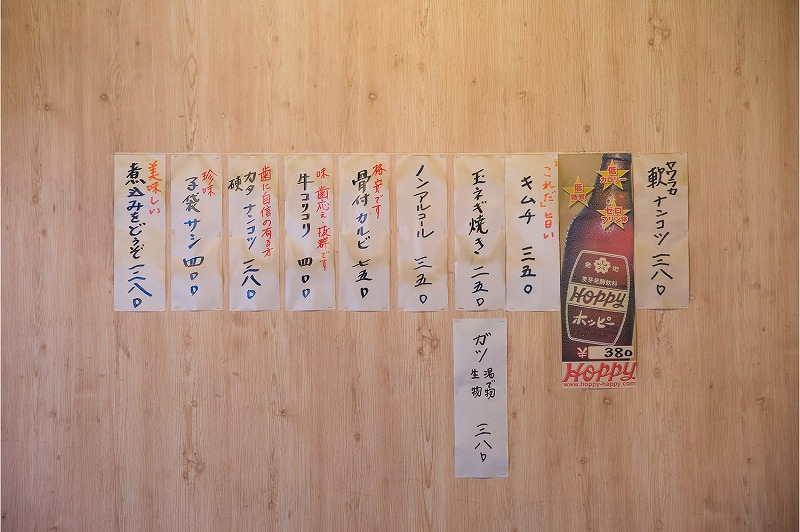 ヤワラカ
軟ナンコツ 三八〇
低
カロリー
低
糖質
ゼロ
プリン体
麦芽発酵飲料
Hoppy
ホッピー
¥ 380
HOPPY
www.hoppy-happy.com
「これだ」旨い
キムチ 三五〇
玉ネギ焼き 二五〇
ノンアルコール 三五〇
格安です
骨付カルビ 七五〇
味、歯応え・抜群です
牛コリコリ 四〇〇
歯に自信の有る方
カタナンコツ 三八〇
硬
珍味
子袋サシ 四〇〇
美味しい
煮込みをどうぞ 三八〇
ガツ 湯で物
生物
三八〇